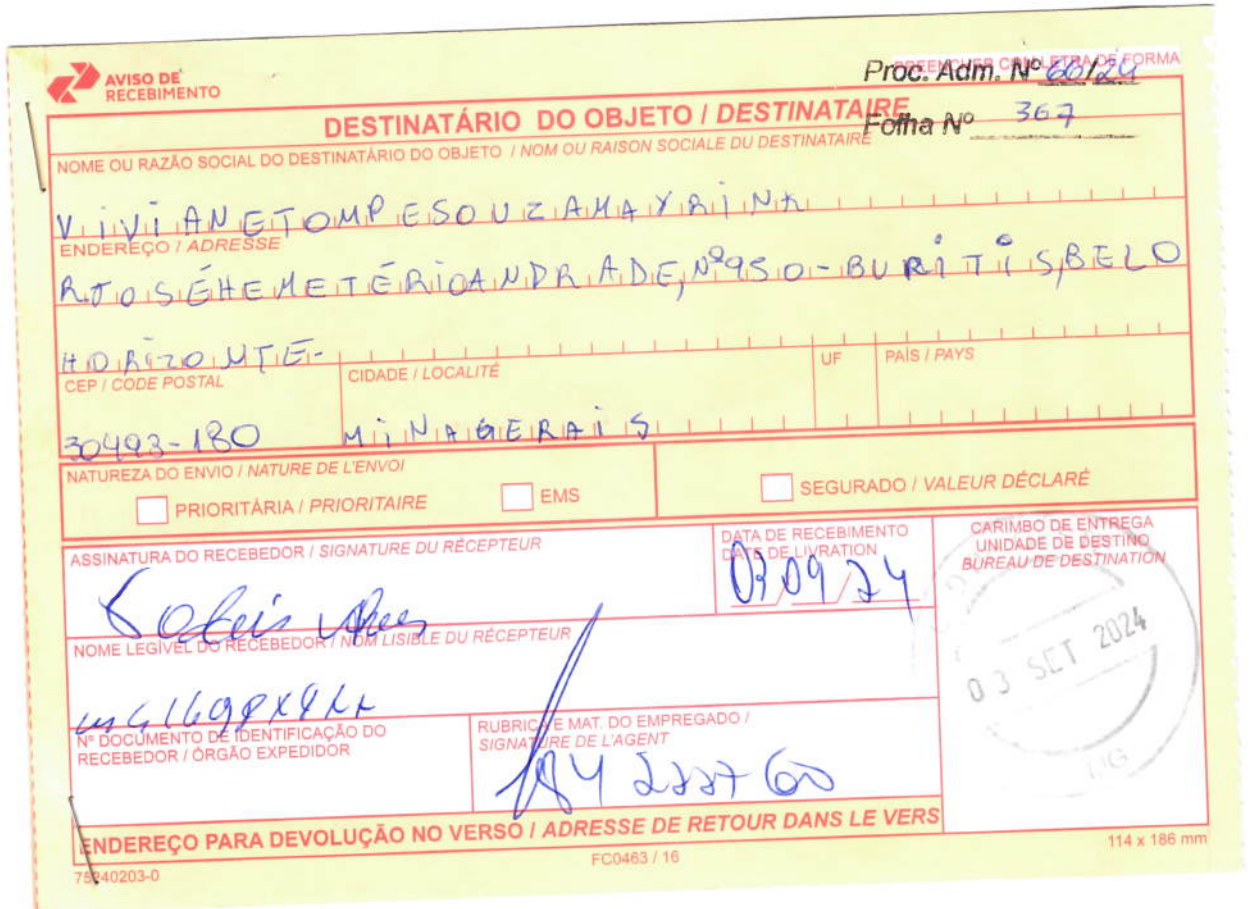 AVISO DE
RECEBIMENTO
PREENCHER COM LETRA DE FORMA
Proc. Adm. Nº 60/24
DESTINATÁRIO DO OBJETO / DESTINATAIRE
Folha Nº 367
NOME OU RAZÃO SOCIAL DO DESTINATÁRIO DO OBJETO / NOM OU RAISON SOCIALE DU DESTINATAIRE
ViViANETOMPESOUZAMAYRiNK
ENDEREÇO / ADRESSE
R.JOSÉHEMETÉRiOANDRADE,Nº950-BURiTiS,BELO
HORiZONTE-
CEP / CODE POSTAL
CIDADE / LOCALITÉ
UF
PAÍS / PAYS
30493-180
MiNAGERAiS
NATUREZA DO ENVIO / NATURE DE L'ENVOI
PRIORITÁRIA / PRIORITAIRE
EMS
SEGURADO / VALEUR DÉCLARÉ
ASSINATURA DO RECEBEDOR / SIGNATURE DU RÉCEPTEUR
DATA DE RECEBIMENTO
DATE DE LIVRATION
03/09/24
CARIMBO DE ENTREGA
UNIDADE DE DESTINO
BUREAU DE DESTINATION
03 SET 2024
MG
NOME LEGÍVEL DO RECEBEDOR / NOM LISIBLE DU RÉCEPTEUR
Nº DOCUMENTO DE IDENTIFICAÇÃO DO
RECEBEDOR / ÓRGÃO EXPEDIDOR
RUBRICA E MAT. DO EMPREGADO /
SIGNATURE DE L'AGENT
ENDEREÇO PARA DEVOLUÇÃO NO VERSO / ADRESSE DE RETOUR DANS LE VERS
75240203-0
FC0463 / 16
114 x 186 mm